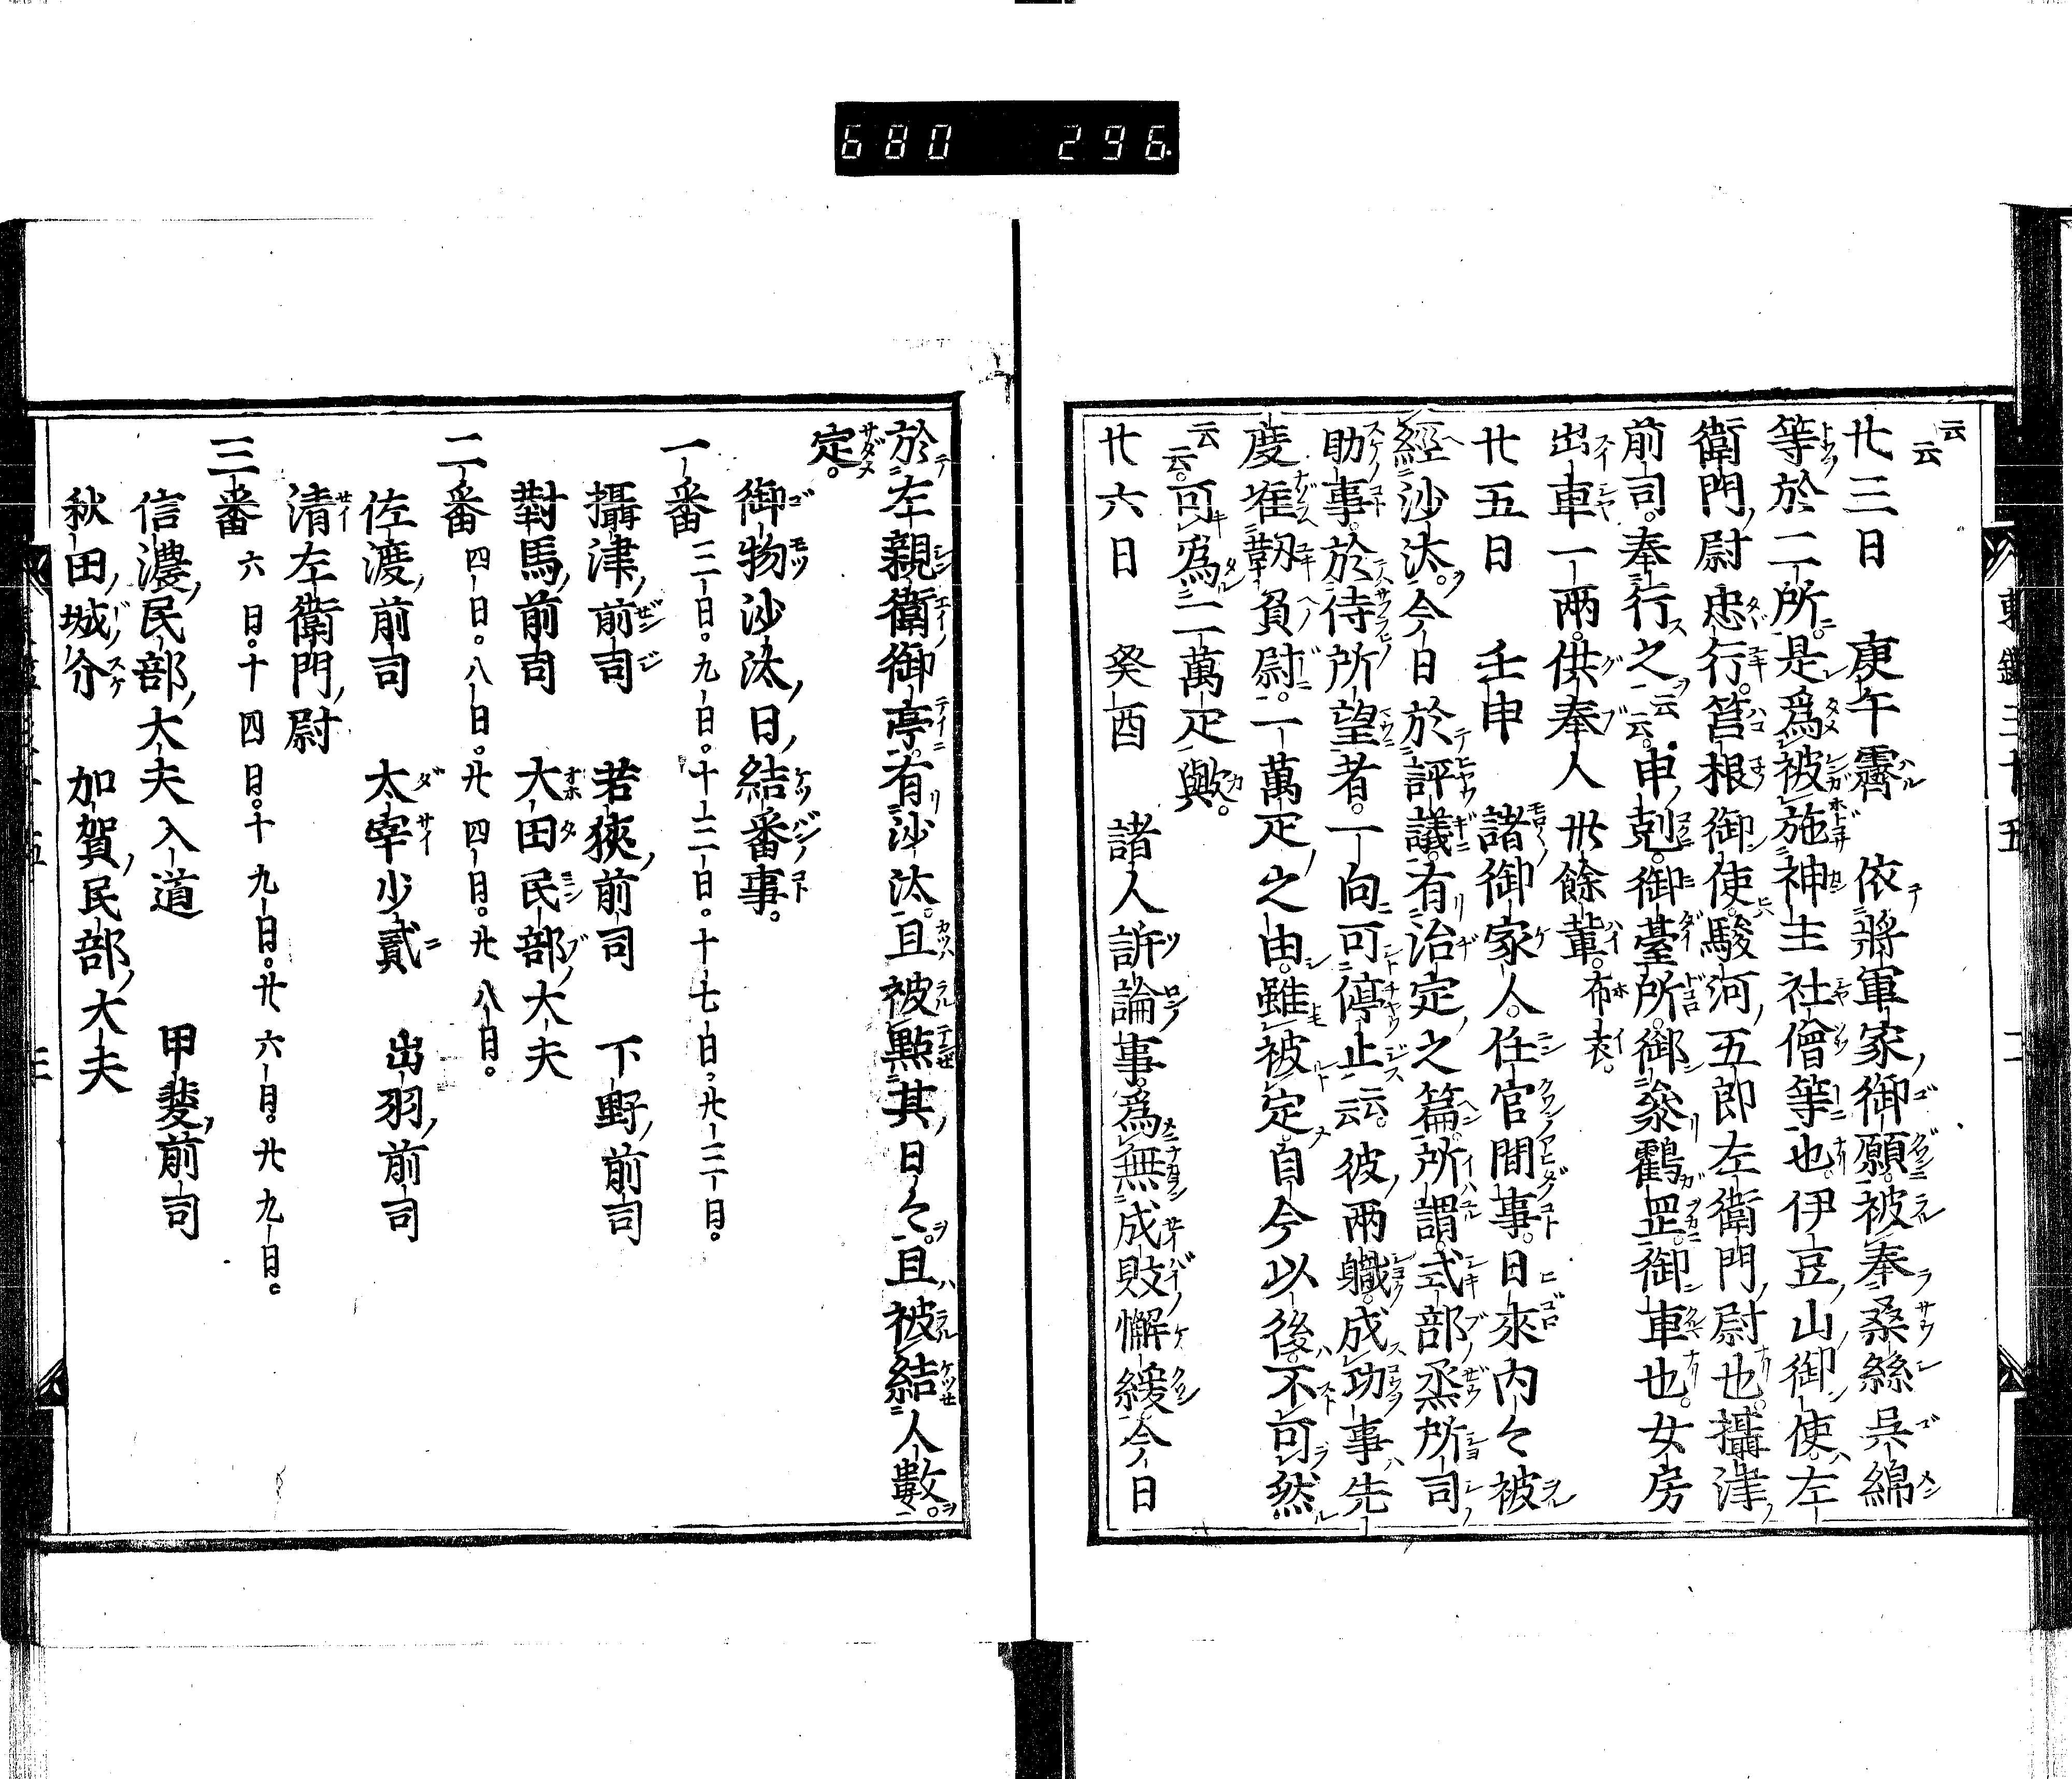 680 296
云云
廿三日 庚午霽 依將軍家御願被奉桑絲呉綿
等於二所是爲被施神主社僧等也伊豆山御使左
衛門尉忠行筥根御使駿河五郎左衛門尉也攝津
前司奉行之云云申剋御臺所御參鸛岦御車也女房
出車一兩供奉人丗餘輩布衣
廿五日 壬申 諸御家人任官間事日來内々被
經沙汰今日於評議有治定之篇所謂式部烝所司
助事於侍所望者一向可停止云云彼兩職成功事先
度准靱負尉一萬疋之由雖被定自今以後不可然
可爲二萬疋歟云云
廿六日 癸酉 諸人訴論事爲無成敗懈緩今日
於左親衛御亭有沙汰且被點其日々且被結人數
定
御物沙汰日結番事
一番 三日九日十二日十七日廿三日
攝津前司 若狹前司 下野前司
對馬前司 大田民部大夫
二番 四日八日廿四日廿八日
佐渡前司 太宰少貳 出羽前司
清左衛門尉
三番 六日十四日十九日廿六日廿九日
信濃民部大夫入道 甲斐前司
秋田城介 加賀民部大夫